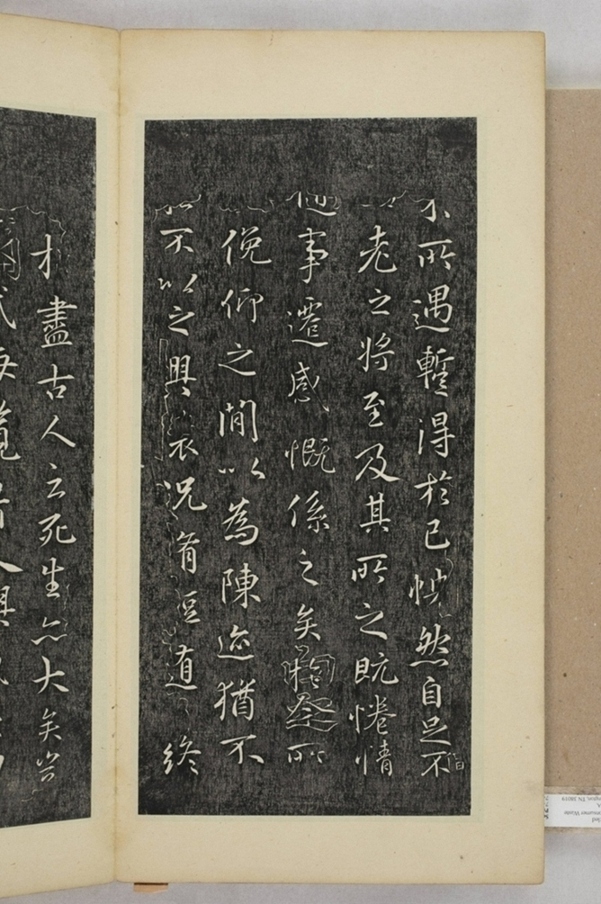 所遇蹔得於己怏然自足不
老之將至及其所之既惓情
事遷感慨係之矣向之所
俛仰之閒以為陳迹猶不
不以之興懷況脩短隨終
盡古人云死生亦大矣豈
哉每攬昔人興